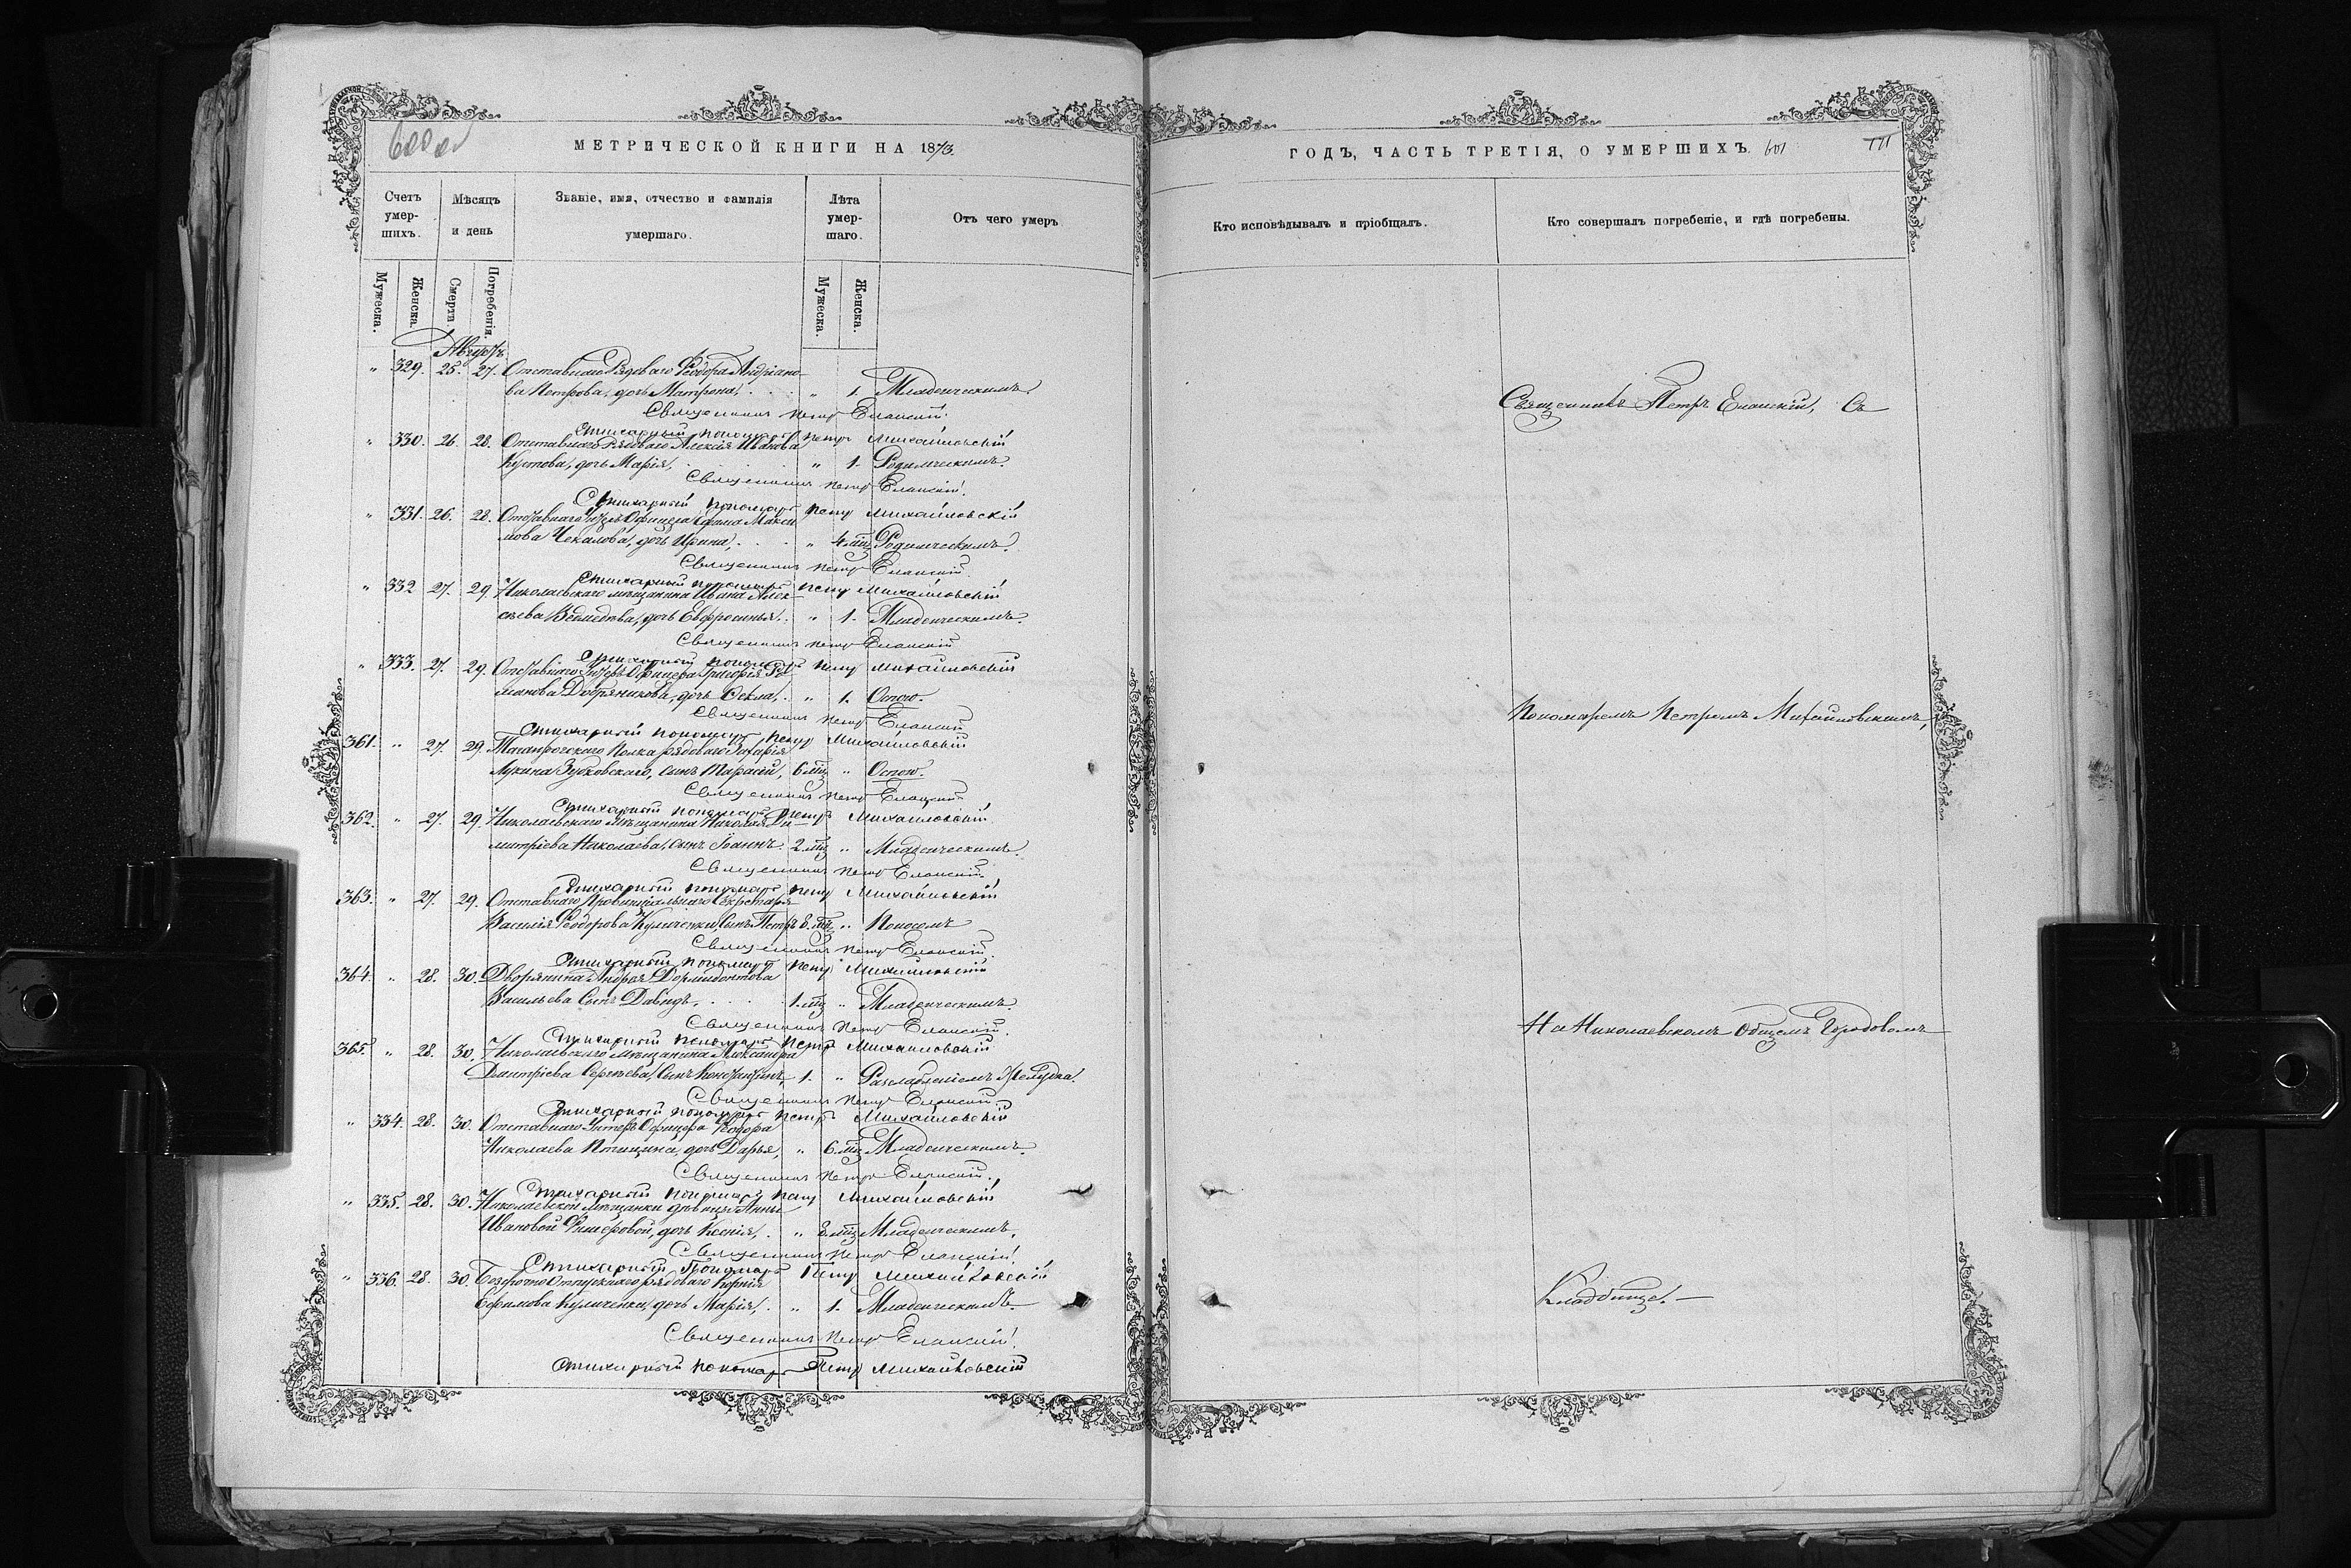 МЕТРИЧЕСКОЙ КНИГИ НА 1873.
Счетъ умер-шихъ.
Мѣсяцъ и день
Званіе, имя, отчество и фамилія умершаго.
Лѣта умер-шаго.
Отъ чего умеръ
Мужеска.
Женска.
Смерти.
Погребенія.
Мужеска.
Женска.
Августъ
" 329. 25. 27. Отставнаго Рядоваго Ѳеодора Андріано-
ва Петрова, дочь Матрона, . . . " 1. Младенческимъ.
Священникъ Петръ Еланскій.
Стихарный пономарь Петръ Михайловскій
" 330. 26. 28. Отставнаго Рядоваго Алексія Иванова
Кустова, дочь Марія, " 1. Родимческимъ.
Священникъ Петръ Еланскій.
Стихарный пономарь Петръ Михайловскій
" 331. 26. 28. Отставнаго Унтеръ Офицера Макси
мова Чекалова, дочь Ирина, . . . " 4 мц. Родимческимъ.
Священникъ Петръ Еланскій.
Стихарный пономарь Петръ Михайловскій
" 332 27. 29. Николаевскаго мѣщанина Ивана Алек-
сѣева дочь Евфросинья, . " 1. Младенческимъ.
Священникъ Петръ Еланскій
Стихарный пономарь Петръ Михайловскій
" 333. 27. 29. Отставнаго Унтеръ Офицера Григорія Ро
манова Добрякникова, дочь Ѳекла, . " 1. Оспою.
Священникъ Петръ Еланскій
Стихарный пономарь Петръ Михайловскій
361. " 27. 29. Таганрогскаго Полка рядоваго Захарія
Лукина Зубковскаго, сынъ Тарасій, 6 мц. " Оспою.
Священникъ Петръ Еланскій
Стихарный пономарь Петръ Михайловскій
362. " 27. 29. Николаевскаго Мѣщанина Николая Ди-
митріева Николаева, сынъ Іоаннъ. 2. мц. " Младенческимъ.
Священникъ Петръ Еланскій.
Стихарный пономарь Петръ Михайловскій
363. " 27. 29. Отставнаго Провинціальнаго Секретаря
Василія Ѳеодорова Куличенки, Сынъ Петръ 8. мц. " Поносомъ
Священникъ Петръ Еланскій.
Стихарный пономарь Петръ Михайловскій
364. " 28. 30. Дворянина Андрея Дормидонтова
Васильева Сынъ Давидъ, . . . . 1. мц. " Младенческимъ.
Священникъ Петръ Еланскій.
Стихарный пономарь Петръ Михайловскій
365. " 28. 30. Николаевскаго Мѣщанина Александра
Дмитріева Сергѣева, Сынъ Константинъ, 1. " Разслабленіемъ Желудка.
Священникъ Петръ Еланскій.
Стихарный пономарь Петръ Михайловскій
" 334. 28. 30. Отставнаго Унтеръ Офицера Ѳеодора
Николаева Птицина, дочь Дарья, " 6. мц. Младенческимъ.
Священникъ Петръ Еланскій.
Стихарный пономарь Петръ Михайловскій
" 335. 28. 30. Николаевской Мѣщанки дѣвицы Анны
Ивановой Фишеровой, дочь Ксенія, . " 8 мц. Младенческимъ.
Священникъ Петръ Еланскій.
Стихарный Пономарь Петръ Михайловскій
" 336. 28. 30. Безсрочно Отпускнаго рядоваго
Ефимова Куличенки, дочь Марія, . " 1. Младенческимъ.
Священникъ Петръ Еланскій.
Стихарный пономарь Петръ Михайловскій
ГОДЪ, ЧАСТЬ ТРЕТІЯ, О УМЕРШИХЪ. 601
Кто исповѣдывалъ и пріобщалъ.
Кто совершалъ погребеніе, и гдѣ погребены.
Священникъ Петръ Еланскій, Съ
Пономаремъ Петромъ Михайловскимъ,
На Николаевскомъ Общемъ Городовомъ
Кладбищѣ.